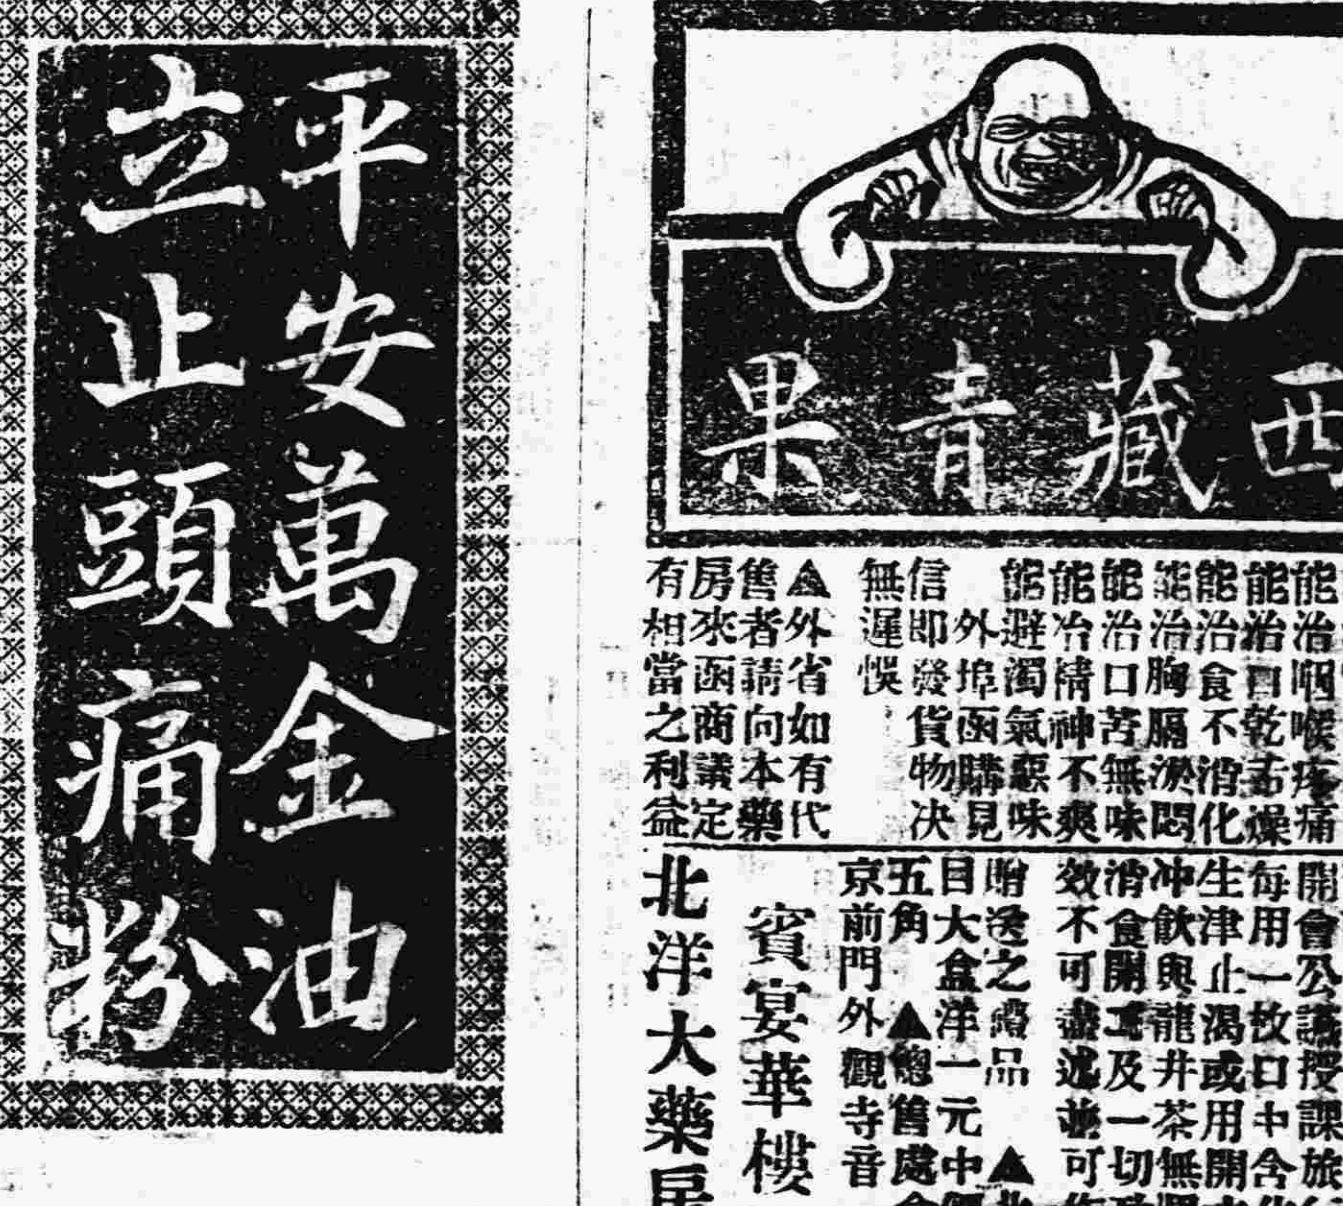 平安萬金油
立止頭痛粉
西藏青果
能治咽喉疼痛
能治口乾舌燥
能治食不消化
能治胸膈淤悶
能治口苦無味
能治精神不爽
能避濁氣惡味
外埠函購見
信即發貨物决
無遲悞
▲外省如有代
售者請向本藥
房來函商議定
有相當之利益
開會公議授課旅
每用一枚口中含
生津止渴或用開
冲飲與龍井茶無
消食開胃及一切
效不可盡述並可
贈送之禮品 ▲
目大盒洋一元中
五角 ▲總售處
京前門外觀寺音
賓宴華樓
北洋大藥房